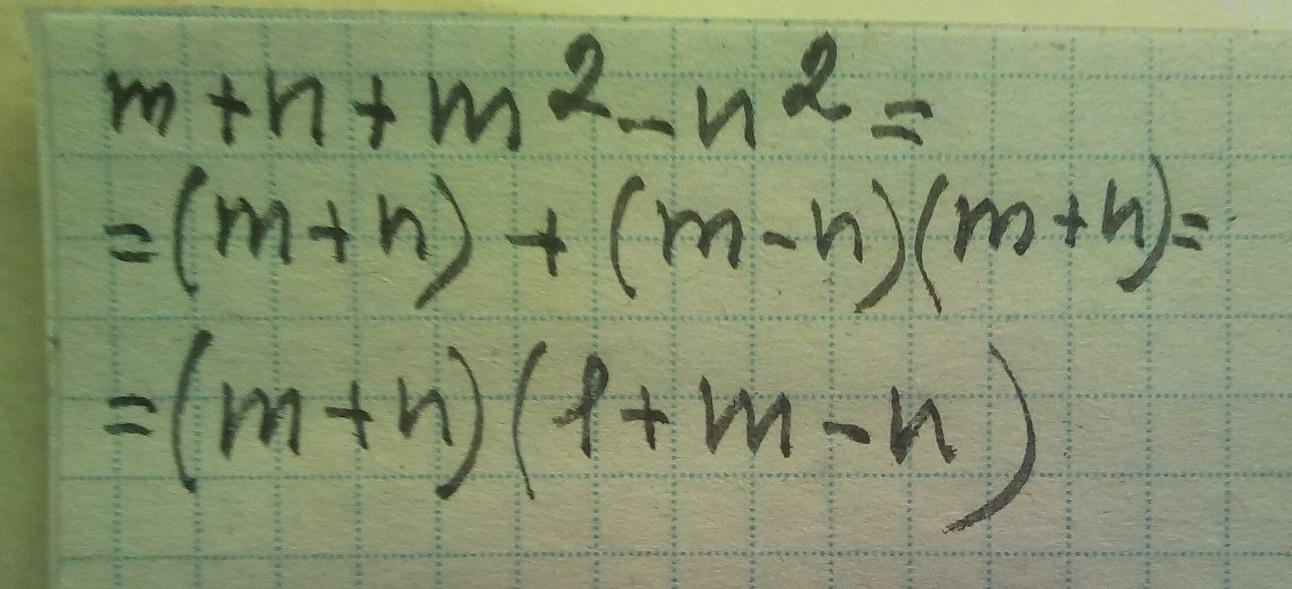 m+n+m²-n²=
=(m+n)+(m-n)(m+n)=
=(m+n)(1+m-n)